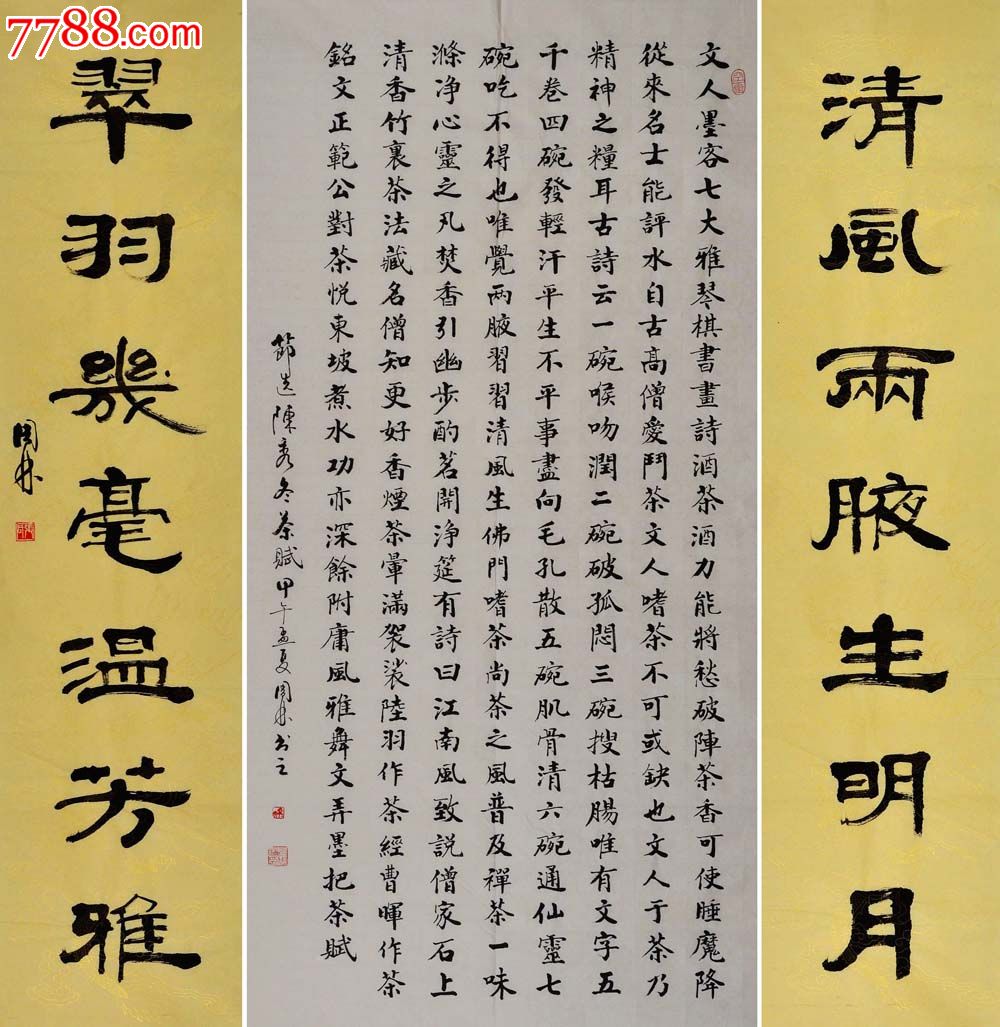 7788.com
清風兩腋生明月
文人墨客七大雅琴棋書畫詩酒茶酒力能將愁破陣茶香可使睡魔降
從來名士能評水自古高僧愛鬥茶文人嗜茶不可或缺也文人于茶乃
精神之糧耳古詩云一碗喉吻潤二碗破孤悶三碗搜枯腸唯有文字五
千卷四碗發輕汗平生不平事盡向毛孔散五碗肌骨清六碗通仙靈七
碗吃不得也唯覺两腋習習清風生佛門嗜茶尚茶之風普及禪茶一味
滌净心靈之凡焚香引幽步酌茗開净筵有詩曰江南風致説僧家石上
清香竹裏茶法藏名僧知更好香煙茶暈滿袈裟陸羽作茶經曹暉作茶
銘文正範公對茶悦東坡煮水功亦深餘附庸風雅舞文弄墨把茶賦
節選陳秀冬茶賦甲午孟夏周林书之
翠羽幾毫温芳雅
周林